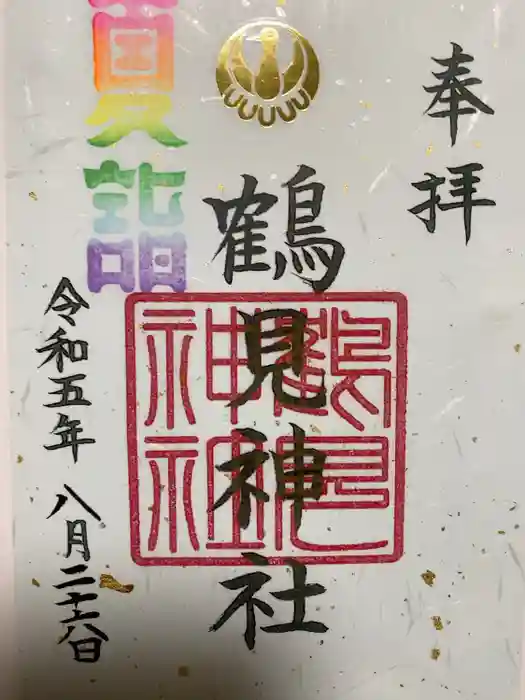 奉拝
鶴見神社
鶴見
神社
員詣
令和五年 八月二十六日